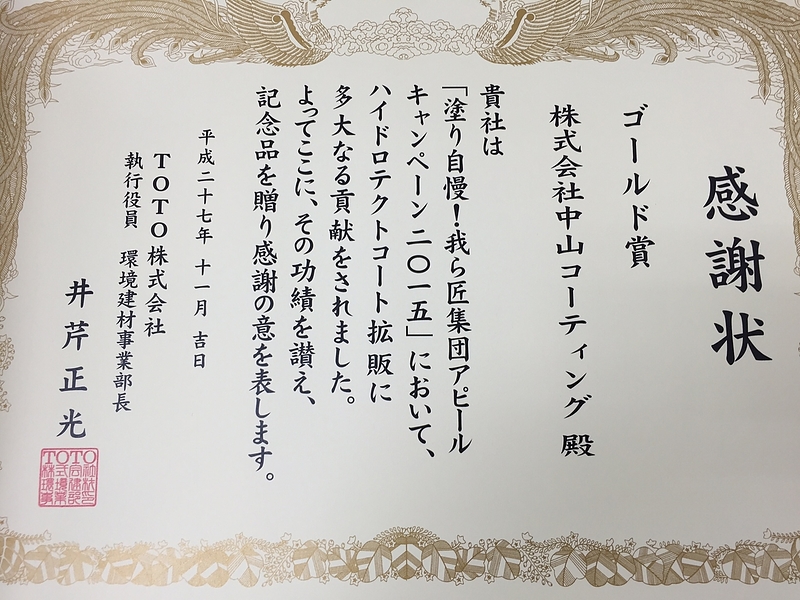 感謝状
ゴールド賞
株式会社中山コーティング 殿
貴社は
「塗り自慢！我ら匠集団アピール
キャンペーン二〇一五」において、
ハイドロテクトコート拡販に
多大なる貢献をされました。
よってここに、その功績を讃え、
記念品を贈り感謝の意を表します。
平成二十七年 十一月 吉日
TOTO株式会社
執行役員 環境建材事業部長
井芹正光
TOTO